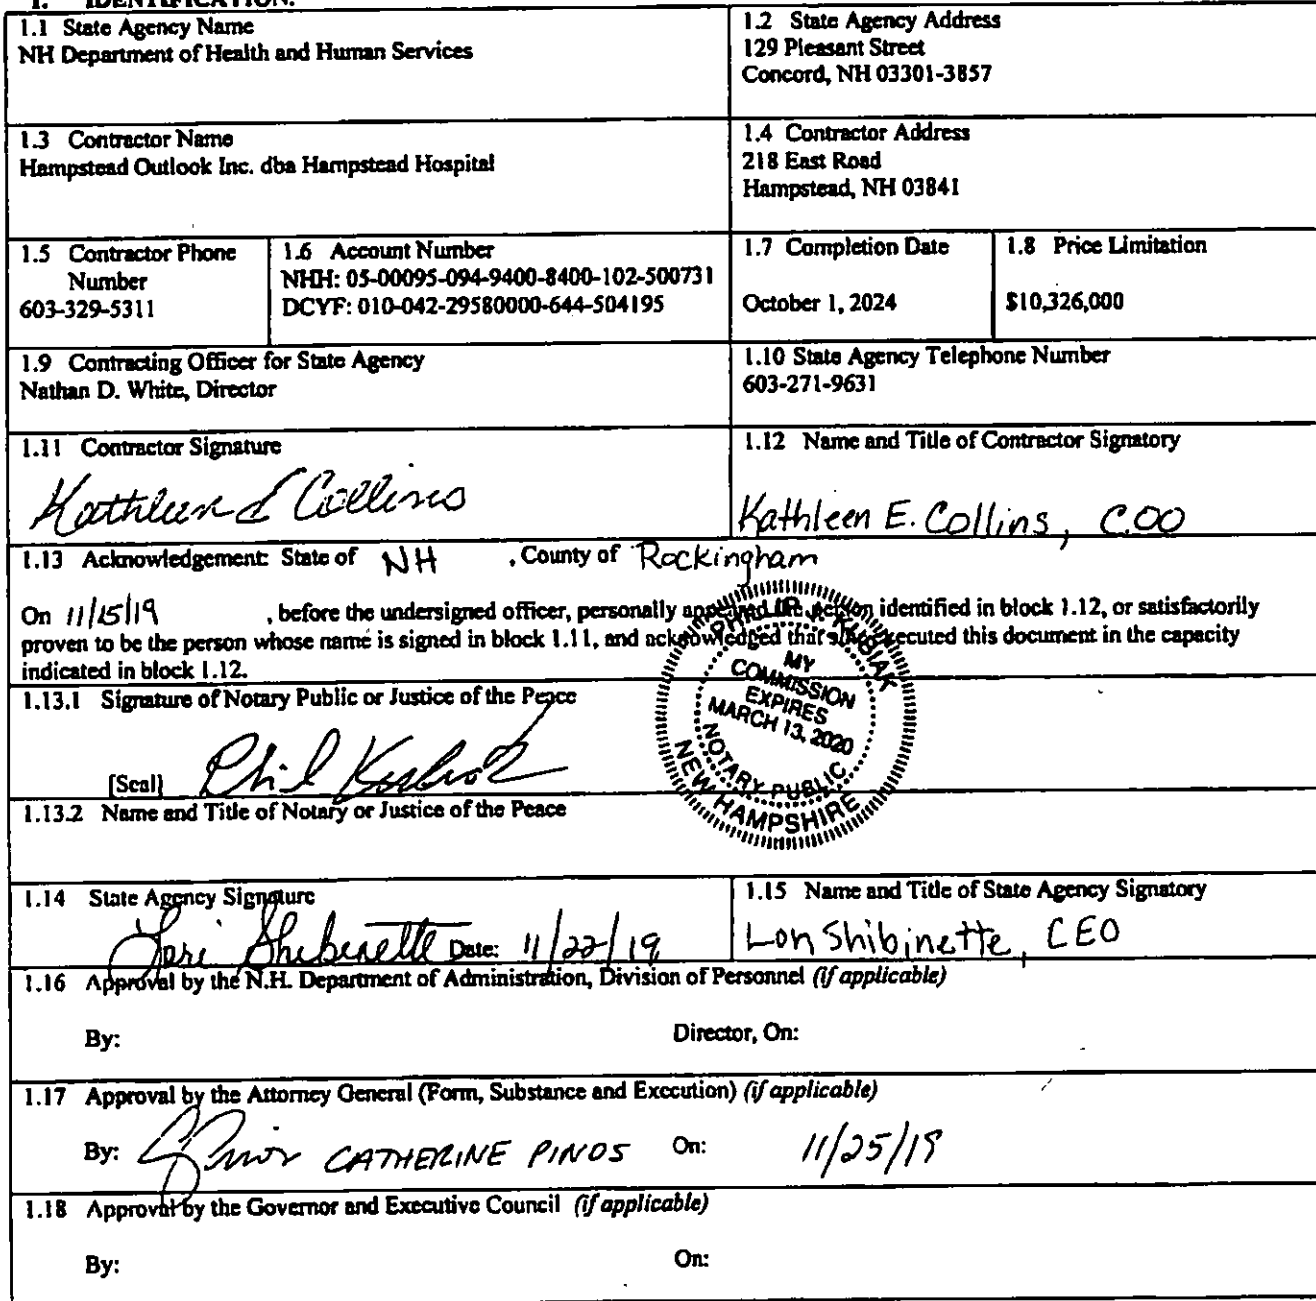 I. IDENTIFICATION.
1.1 State Agency Name
NH Department of Health and Human Services
1.2 State Agency Address
129 Pleasant Street
Concord, NH 03301-3857
1.3 Contractor Name
Hampstead Outlook Inc. dba Hampstead Hospital
1.4 Contractor Address
218 East Road
Hampstead, NH 03841
1.5 Contractor Phone
Number
603-329-5311
1.6 Account Number
NHH: 05-00095-094-9400-8400-102-500731
DCYF: 010-042-29580000-644-504195
1.7 Completion Date
October 1, 2024
1.8 Price Limitation
$10,326,000
1.9 Contracting Officer for State Agency
Nathan D. White, Director
1.10 State Agency Telephone Number
603-271-9631
1.11 Contractor Signature
Kathleen E Collins
1.12 Name and Title of Contractor Signatory
Kathleen E. Collins, COO
1.13 Acknowledgement: State of NH , County of Rockingham
On 11/15/19 , before the undersigned officer, personally appeared the person identified in block 1.12, or satisfactorily
proven to be the person whose name is signed in block 1.11, and acknowledged that s/he executed this document in the capacity
indicated in block 1.12.
PHILIP J. KUBIAK
MY
COMMISSION
EXPIRES
MARCH 13, 2020
NOTARY PUBLIC
NEW HAMPSHIRE
1.13.1 Signature of Notary Public or Justice of the Peace
[Seal] Phil Kubiak
1.13.2 Name and Title of Notary or Justice of the Peace
1.14 State Agency Signature
Lori Shibinette Date: 11/22/19
1.15 Name and Title of State Agency Signatory
Lori Shibinette, CEO
1.16 Approval by the N.H. Department of Administration, Division of Personnel (if applicable)
By: Director, On:
1.17 Approval by the Attorney General (Form, Substance and Execution) (if applicable)
By: CPinos CATHERINE PINOS On: 11/25/19
1.18 Approval by the Governor and Executive Council (if applicable)
By: On: